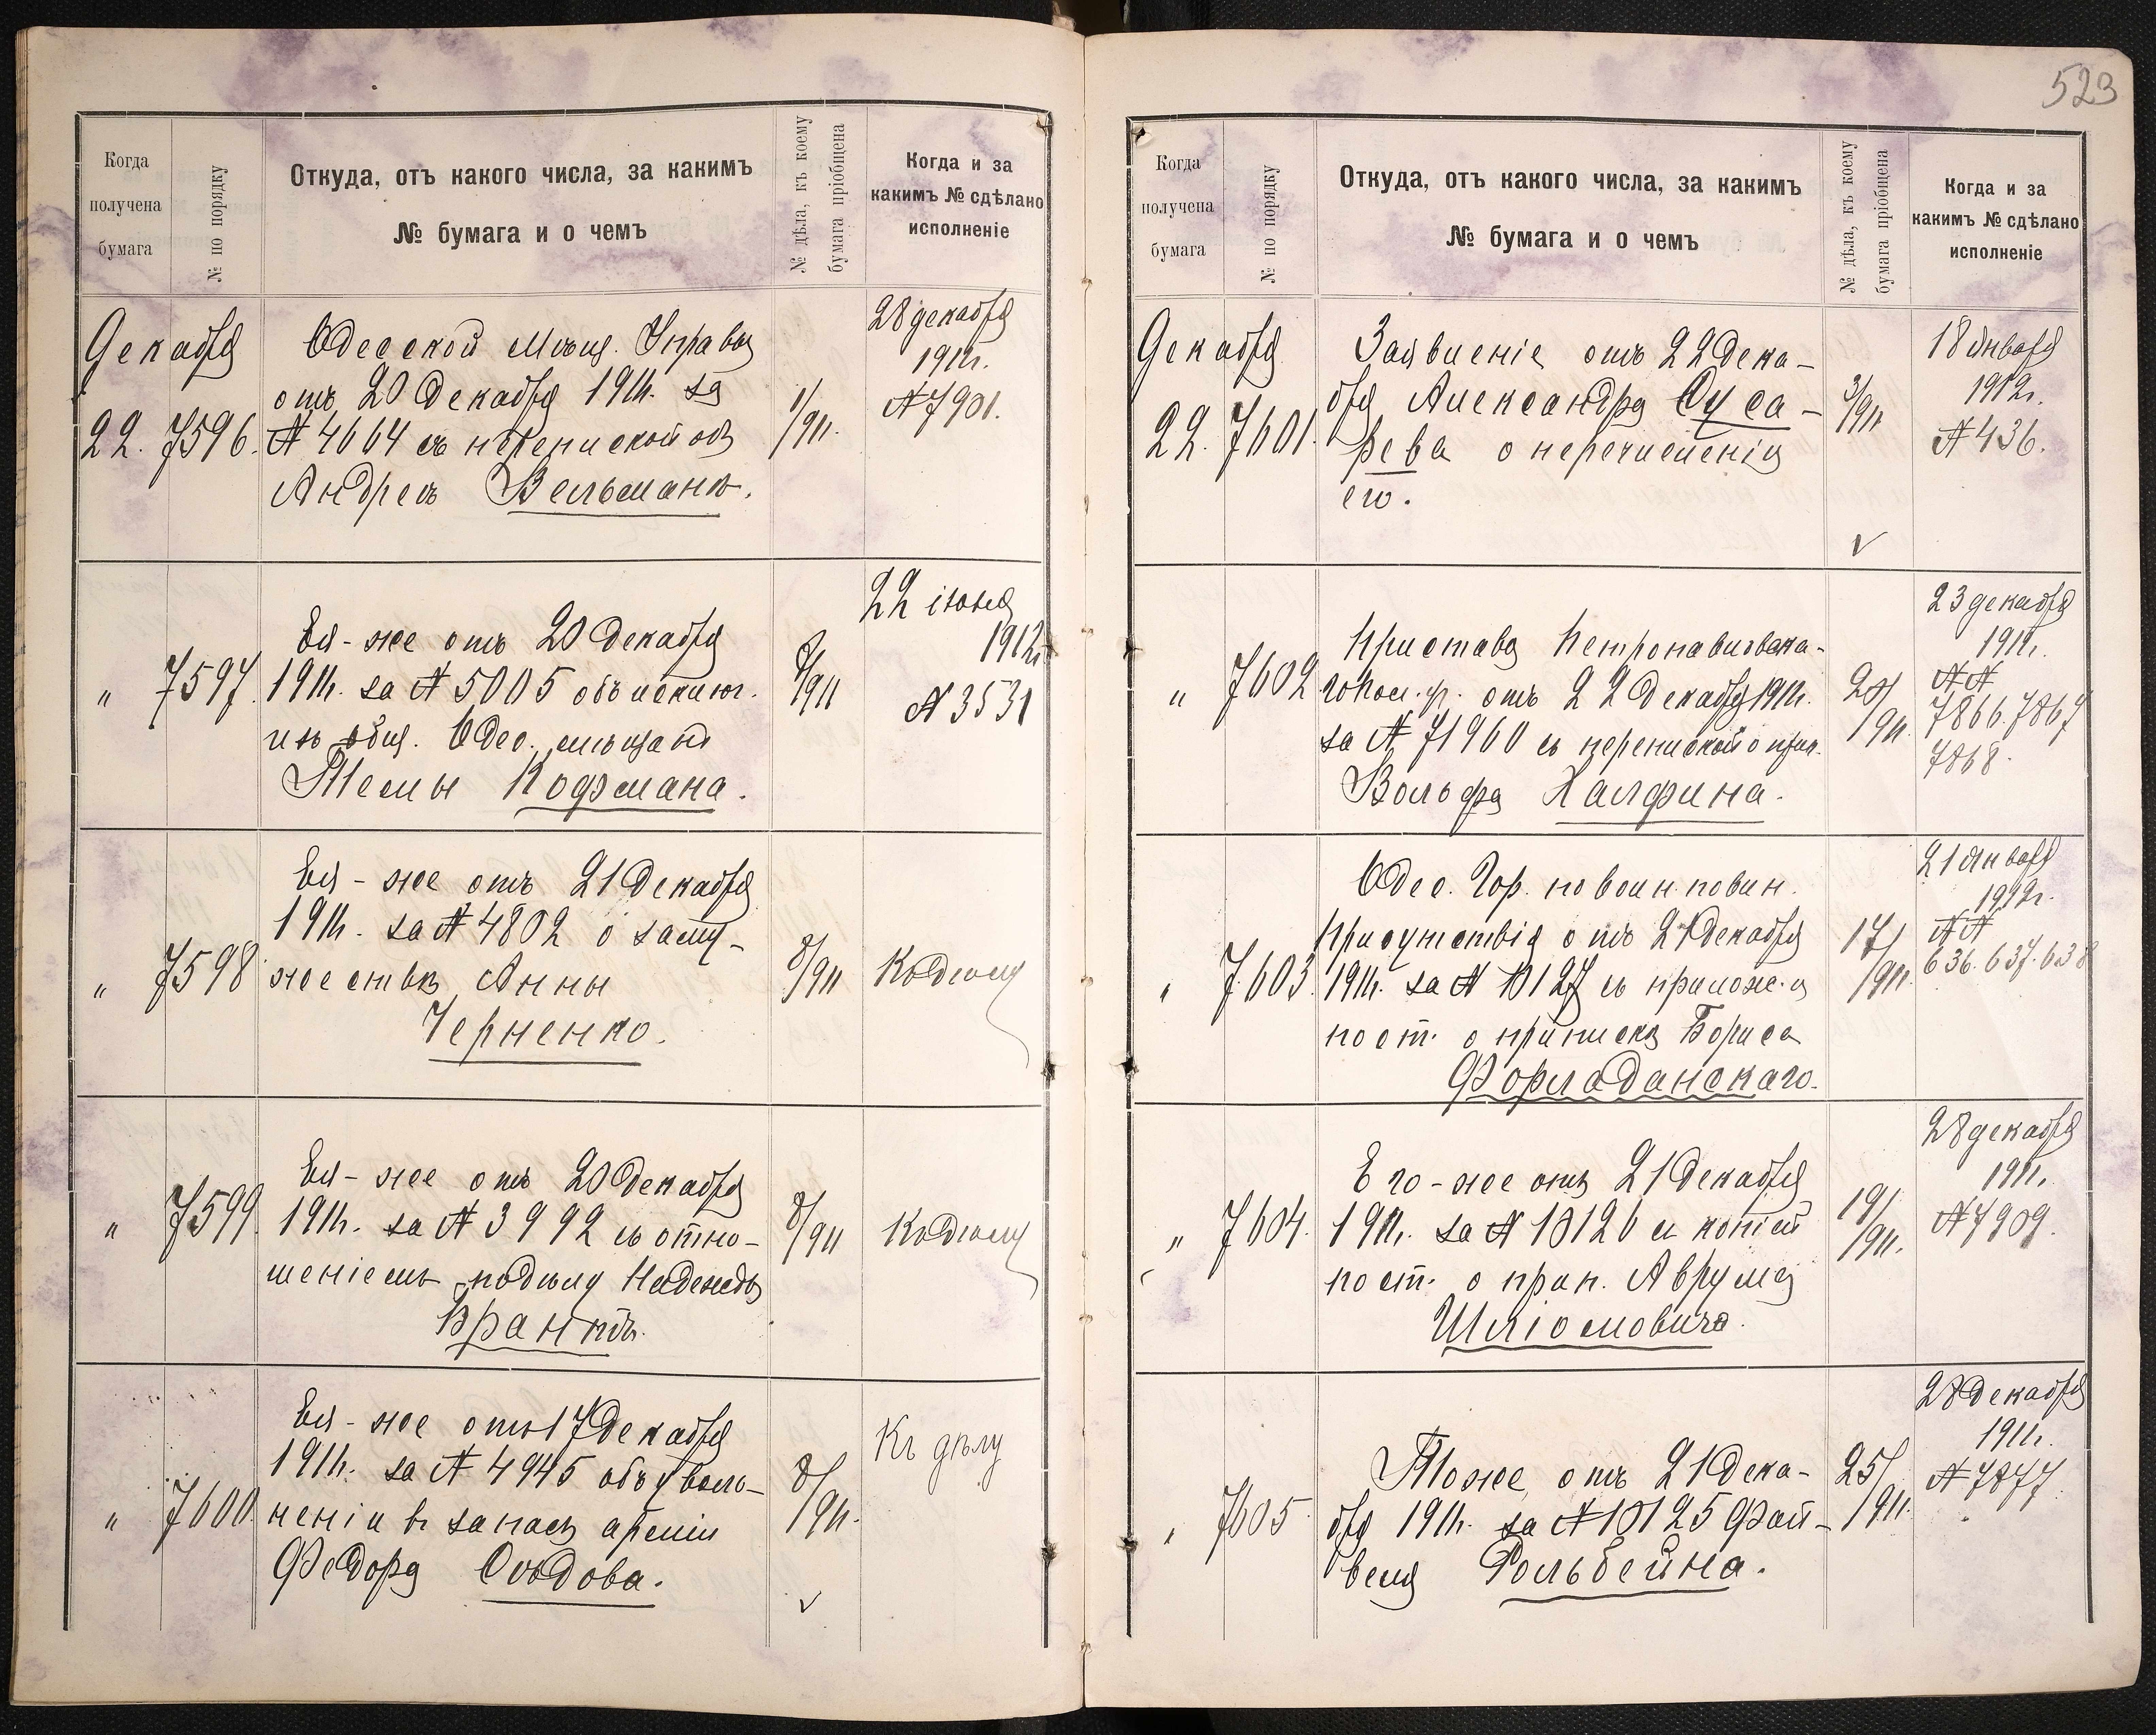 Когда
получена
бумага
№ по порядку
Откуда, отъ какого числа, за какимъ
№ бумага и о чемъ
№ дѣла, къ коему
бумага пріобщена
Когда и за
какимъ № сдѣлано
исполненіе
Декабря
22. 7596.
Одесской Мѣщ. Управы
отъ 20 Декабря 1911г. за
№ 4664 съ перепиской объ
Андреѣ Вельманъ.
1/911.
28 декабря
1911г.
№ 7901.
" 7597.
Ея-же отъ 20 Декабря
1911г. за № 5005 объ исключ.
изъ общ. Одес. мѣщанъ
Темы Кофмана.
8/911
22 іюня
1912г.
№ 3531
" 7598
Ея-же отъ 21 Декабря
1911г. за № 4802 о заму-
жествѣ Анны
Черненко.
8/911
Къ дѣлу
" 7599.
Ея-же отъ 20 Декабря
1911г. за № 3992 съ отно-
шеніемъ по дѣлу Надежды
Брантъ.
8/911
Къ дѣлу
" 7600.
Ея-же отъ 17 Декабря
1911г. за № 4945 объ уволь-
неніи въ запасъ арміи
Федора Сѣдова.
8/911.
Къ дѣлу
523
Когда
получена
бумага
№ по порядку
Откуда, отъ какого числа, за какимъ
№ бумага и о чемъ
№ дѣла, къ коему
бумага пріобщена
Когда и за
какимъ № сдѣлано
исполненіе
Декабря
22. 7601.
Заявленіе отъ 22 Дека-
бря Александра Суса-
рева о перечисленіи
его.
3/911
18 Января
1912г.
№ 436.
" 7602
Пристава Петропавловска-
го пол. уч. отъ 22 Декабря 1911г.
за № 71960 съ перепиской о прич.
Вольфа Халфина.
28/911.
23 декабря
1911г.
№№
7866. 7867
7868.
" 7603.
Одес. Гор. по воин. повин.
Присутствія отъ 21 Декабря
1911г. за № 10127 съ прилож.
пост. о припискѣ Бориса
Формаданскаго.
17/911.
21 Января
1912г.
№№
636. 637. 638
" 7604.
Его-же отъ 21 Декабря
1911г. за № 10126 съ копіей
пост. о прип. Аврума
Шліомовича.
19/911.
28 декабря
1911г.
№ 7909.
" 7605.
Тоже, отъ 21 Дека-
бря 1911г. за № 10125 Фай-
веля Рольбейна.
25/911.
28 Декабря
1911г.
№ 7877.